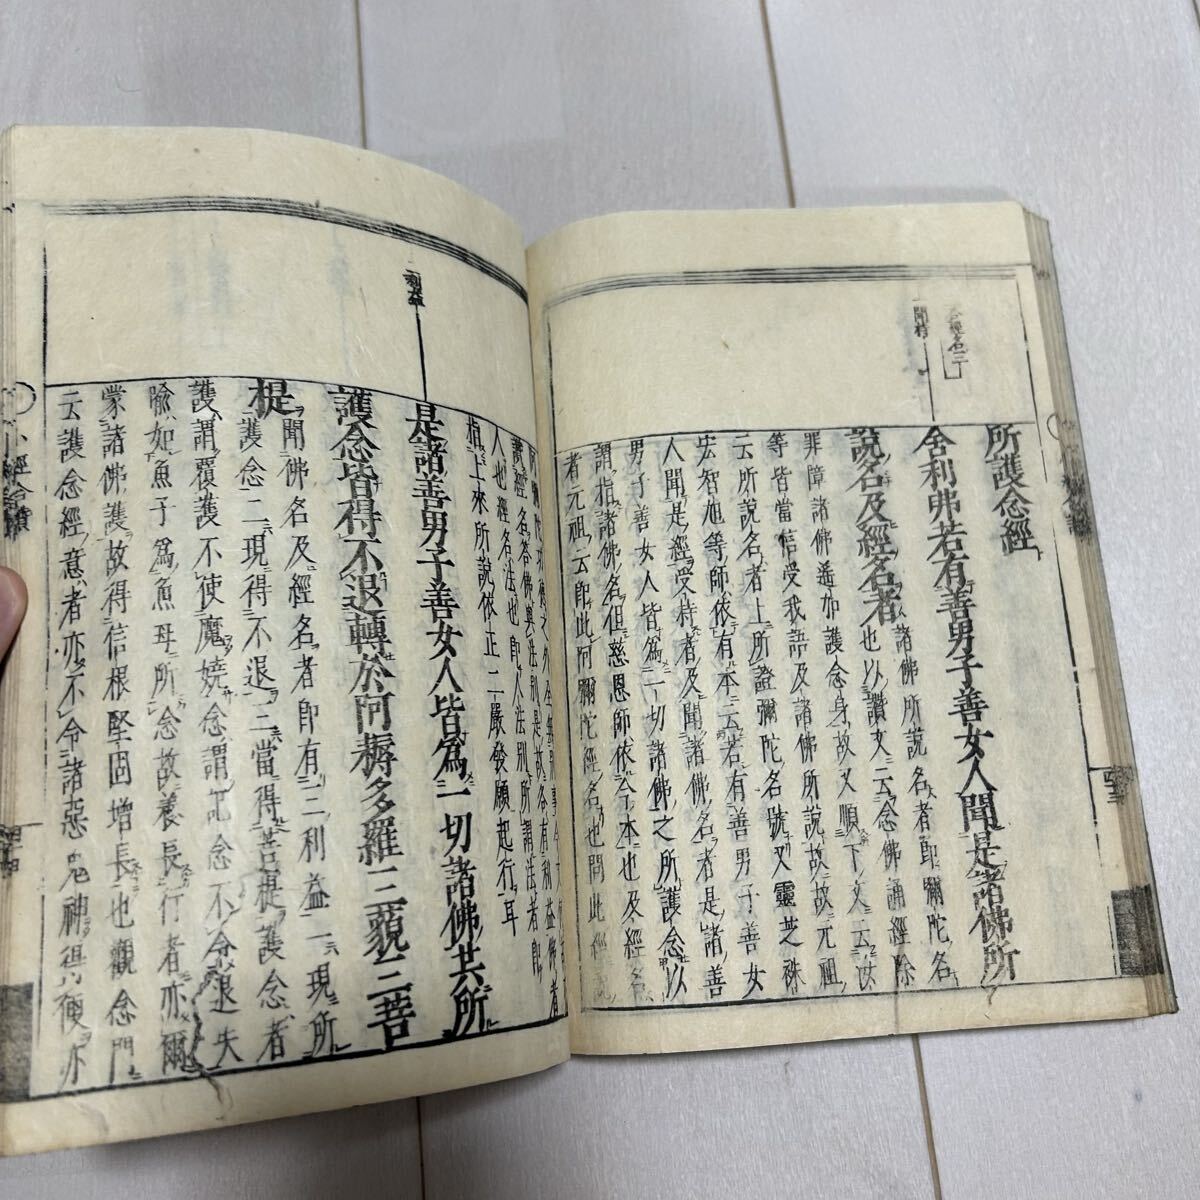 所護念經
舍利弗若有善男子善女人聞是諸佛所
說名及經名者
諸佛所說名者即彌陀名
也以讚文云念佛誦經除
罪障諸佛遙加護念身故又順下文云汝
等皆當信受我語及諸佛所說故故元祖
云所說名者上所證彌陀名號又靈芝
等師依有本云若有善男子善女
人聞是經受持者及聞諸佛名者是諸善
男子善女人皆為一切諸佛之所護念以
謂指諸佛名但慈恩師依今本也及經名
者元祖云即此阿彌陀經名也問此經
護經名答佛與法別是故各有利益佛者
人也經名法也即人法別所謂法者即
指上來所說依正二嚴發願起行耳
利益
是諸善男子善女人皆為一切諸佛共所
護念皆得不退轉於阿耨多羅三藐三菩
提
聞佛名及經名者即有三利益一現所
護念二現得不退三當得菩提護念者
護謂覆護不使魔嬈念謂記念不令退失
喩如魚子為魚母所念故養長行者亦爾
蒙諸佛護故得信根堅固增長也觀念門
云護念經意者亦不令諸惡鬼神得便亦